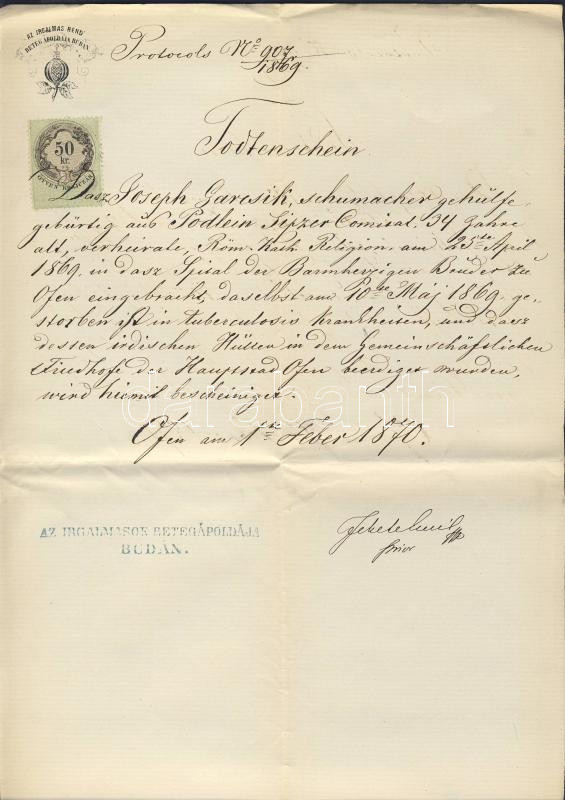 AZ IRGALMAS REND
BETEG ÁPOLDÁJA BUDÁN
Protocols No 907
1869.
50
kr.
ÖTVEN KRAJCZÁR
Todtenschein
Dasz Joseph Garcsik, schumacher gehülfe
gebürtig aus Podlein Zipzer Comitat. 34 Jahre
alt, verheirate, Röm. Kath. Religion, am 23te April
1869. in dasz Spital der Barmherzigen Brüder zu
Ofen eingebracht, daselbst am 10te Maj 1869. ge-
storben ist in tuberculosis Krankheiten, und dasz
dessen irdischen Hüllen in dem Gemeinschäftlichen
Friedhofe der Hauptstad Ofen beerdiget wurden,
wird hiemit bescheiniget.
Ofen am 1te Feber 1870.
AZ IRGALMASOK BETEGÁPOLDÁJA
BUDÁN.
Fekete
prior
darabanth